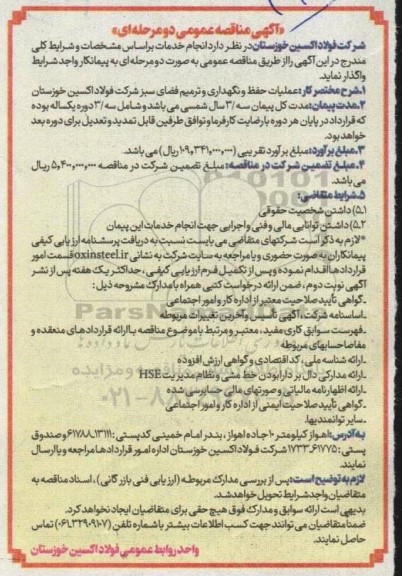 «آگهی مناقصه عمومی دو مرحله ای»
شرکت فولاد اکسین خوزستان در نظر دارد انجام خدمات براساس مشخصات و شرایط کلی
مندرج در این آگهی را از طریق مناقصه عمومی به صورت دو مرحله ای به پیمانکار واجد شرایط
واگذار نماید.
۱.شرح مختصر کار: عملیات حفظ و نگهداری و ترمیم فضای سبز شرکت فولاد اکسین خوزستان
۲.مدت پیمان: مدت کل پیمان سه/۳ سال شمسی می باشد و شامل سه/۳ دوره یکساله بوده
که قرارداد در پایان هر دوره با رضایت کارفرما و توافق طرفین قابل تمدید و تعدیل برای دوره بعد
خواهد بود.
۳.مبلغ برآورد: مبلغ برآورد تقریبی (۱۰۹،۳۴۱،۰۰۰،۰۰۰ ریال) می باشد.
۴.مبلغ تضمین شرکت در مناقصه: مبلغ تضمین شرکت در مناقصه ۵،۴۰۰،۰۰۰،۰۰۰ ریال
می باشد.
۵.شرایط متقاضی:
۵.۱) داشتن شخصیت حقوقی
۵.۲) داشتن توانایی مالی و فنی و اجرایی جهت انجام خدمات این پیمان
*لازم به ذکر است شرکتهای متقاضی می بایست نسبت به دریافت پرسشنامه ارزیابی کیفی
پیمانکاران به صورت حضوری و یا مراجعه به سایت شرکت به نشانی oxinsteel.ir قسمت امور
قراردادها اقدام نموده و پس از تکمیل فرم ارزیابی کیفی، حداکثر یک هفته پس از نشر
آگهی نوبت دوم، ضمن ارائه درخواست کتبی همراه با مدارک مشروحه ذیل:
ـ گواهی تأیید صلاحیت معتبر از اداره کار و امور اجتماعی
ـ اساسنامه شرکت، آگهی تأسیس و آخرین تغییرات مربوطه
ـ فهرست سوابق کاری مفید، معتبر و مرتبط با موضوع مناقصه با ارائه قراردادهای منعقده و
مفاصاحسابهای مربوطه
ـ ارائه شناسه ملی، کد اقتصادی و گواهی ارزش افزوده
ـ ارائه مدارکی دال بر دارا بودن خط مشی و نظام مدیریت HSE
ـ ارائه اظهارنامه مالیاتی و صورتهای مالی حسابرسی شده
ـ گواهی تأیید صلاحیت ایمنی از اداره کار و امور اجتماعی
ـ سایر توانمندیها.
به آدرس: اهواز کیلومتر ۱۰ جاده اهواز، بندر امام خمینی کدپستی: ۱۳۱۱۱-۶۱۷۸۸ و صندوق
پستی: ۶۱۷۷۵-۱۷۳۳ شرکت فولاد اکسین خوزستان اداره امور قراردادها مراجعه و یا ارسال
نمایند.
لازم به توضیح است: پس از بررسی مدارک مربوطه (ارزیابی فنی بازرگانی)، اسناد مناقصه به
متقاضیان واجد شرایط تحویل خواهد شد.
بدیهی است ارائه سوابق و مدارک فوق هیچ حقی برای متقاضیان ایجاد نخواهد کرد.
ضمناً متقاضیان می توانند جهت کسب اطلاعات بیشتر با شماره تلفن (۰۶۱-۳۲۹۰۹۱۰۷) تماس
حاصل نمایند.
واحد روابط عمومی فولاد اکسین خوزستان